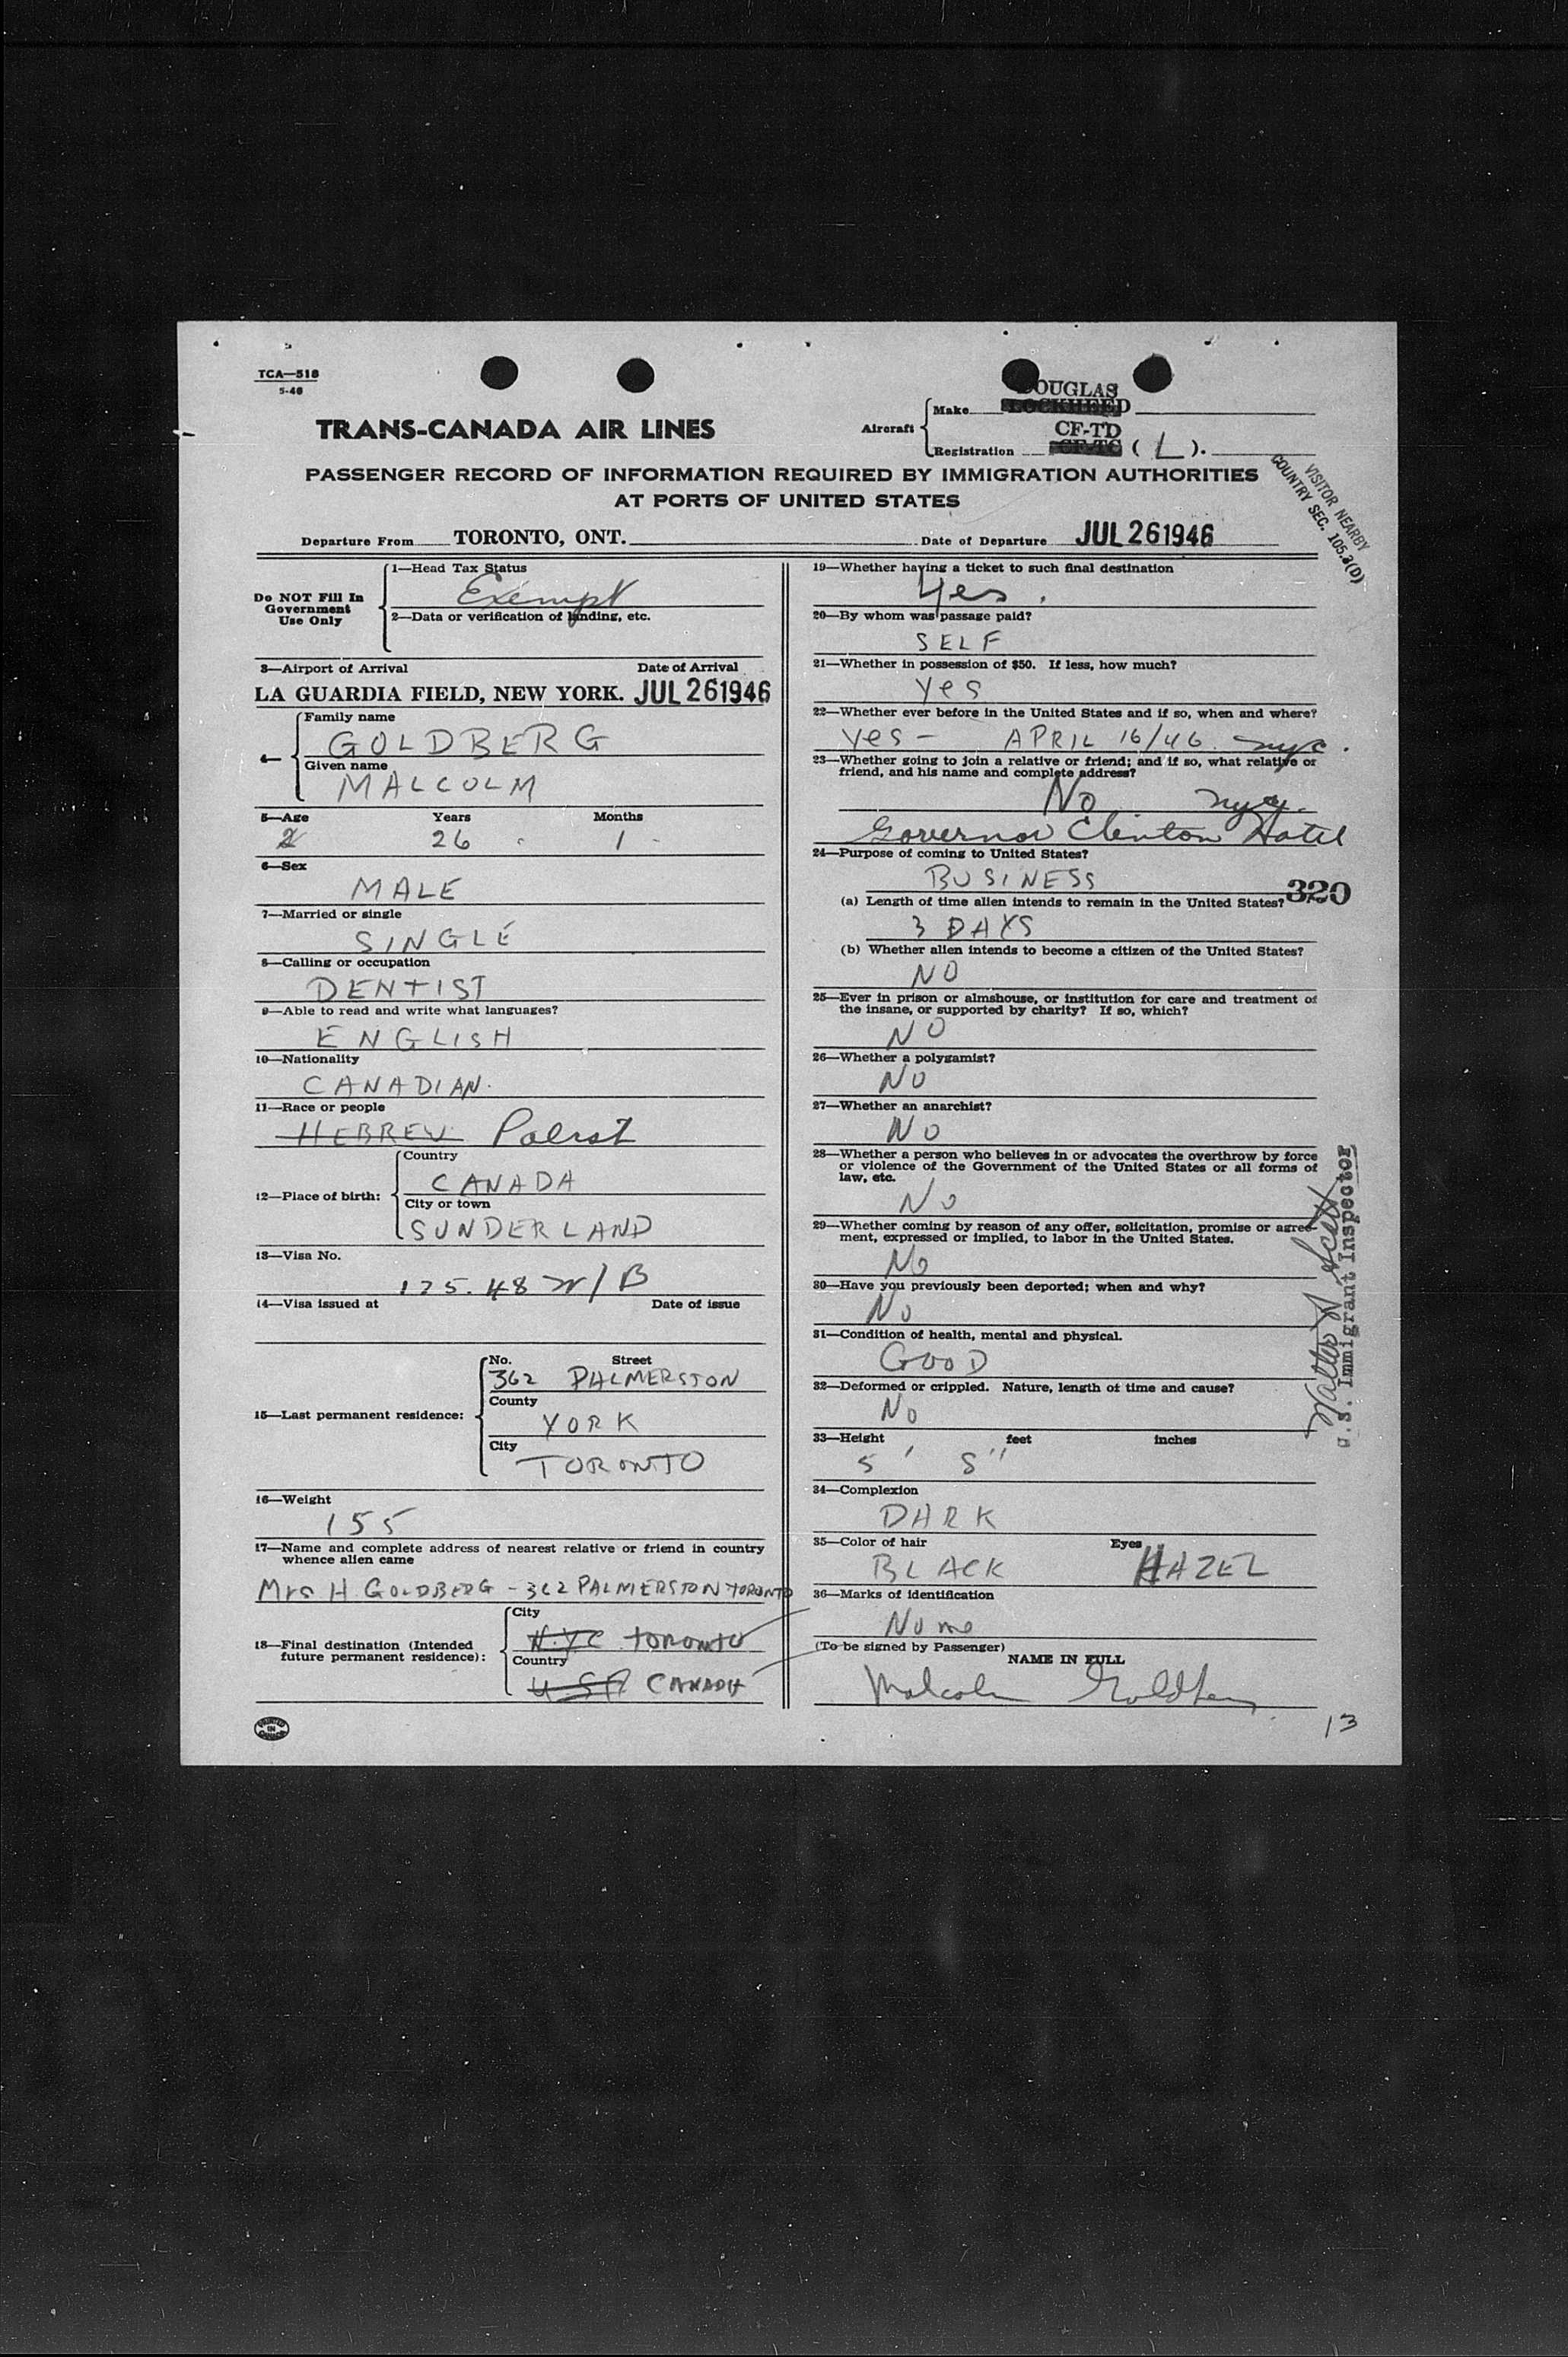 TCA—518
5-46
DOUGLAS
Make
LOCKHEED
TRANS-CANADA AIR LINES
Aircraft
CF-TD
Registration CF-TC ( L ).
PASSENGER RECORD OF INFORMATION REQUIRED BY IMMIGRATION AUTHORITIES
AT PORTS OF UNITED STATES
VISITOR NEARBY
COUNTRY SEC. 105.3(D)
Departure From TORONTO, ONT. Date of Departure JUL 26 1946
Do NOT Fill In
Government
Use Only
1—Head Tax Status
Exempt
2—Data or verification of landing, etc.
3—Airport of Arrival Date of Arrival
LA GUARDIA FIELD, NEW YORK. JUL 26 1946
4— Family name
GOLDBERG
Given name
MALCOLM
5—Age Years Months
2 26 1
6—Sex
MALE
7—Married or single
SINGLE
8—Calling or occupation
DENTIST
9—Able to read and write what languages?
ENGLISH
10—Nationality
CANADIAN.
11—Race or people
HEBREW
12—Place of birth:
Country
CANADA
City or town
SUNDERLAND
13—Visa No.
175.48 w/B
14—Visa issued at Date of issue
15—Last permanent residence:
No. Street
362 PALMERSTON
County
YORK
City
TORONTO
16—Weight
155
17—Name and complete address of nearest relative or friend in country
whence alien came
Mrs H GOLDBERG - 362 PALMERSTON TORONTO
18—Final destination (Intended
future permanent residence):
City
N.Y.C TORONTO
Country
USA CANADA
PRINTED
IN
CANADA
19—Whether having a ticket to such final destination
Yes.
20—By whom was passage paid?
SELF
21—Whether in possession of $50. If less, how much?
Yes
22—Whether ever before in the United States and if so, when and where?
Yes - APRIL 16/46. nyc.
23—Whether going to join a relative or friend; and if so, what relative or
friend, and his name and complete address?
No nyc.
Governor Clinton Hotel
24—Purpose of coming to United States?
BUSINESS
320
(a) Length of time alien intends to remain in the United States?
3 DAYS
(b) Whether alien intends to become a citizen of the United States?
NO
25—Ever in prison or almshouse, or institution for care and treatment of
the insane, or supported by charity? If so, which?
NO
26—Whether a polygamist?
NO
27—Whether an anarchist?
NO
28—Whether a person who believes in or advocates the overthrow by force
or violence of the Government of the United States or all forms of
law, etc.
No
29—Whether coming by reason of any offer, solicitation, promise or agree-
ment, expressed or implied, to labor in the United States.
No
30—Have you previously been deported; when and why?
No
31—Condition of health, mental and physical.
GOOD
32—Deformed or crippled. Nature, length of time and cause?
No
33—Height feet inches
5' 8"
34—Complexion
DARK
35—Color of hair Eyes
BLACK HAZEL
36—Marks of identification
None
(To be signed by Passenger)
NAME IN FULL
Malcolm Goldberg
13
Walter Scott
U.S. Immigrant Inspector